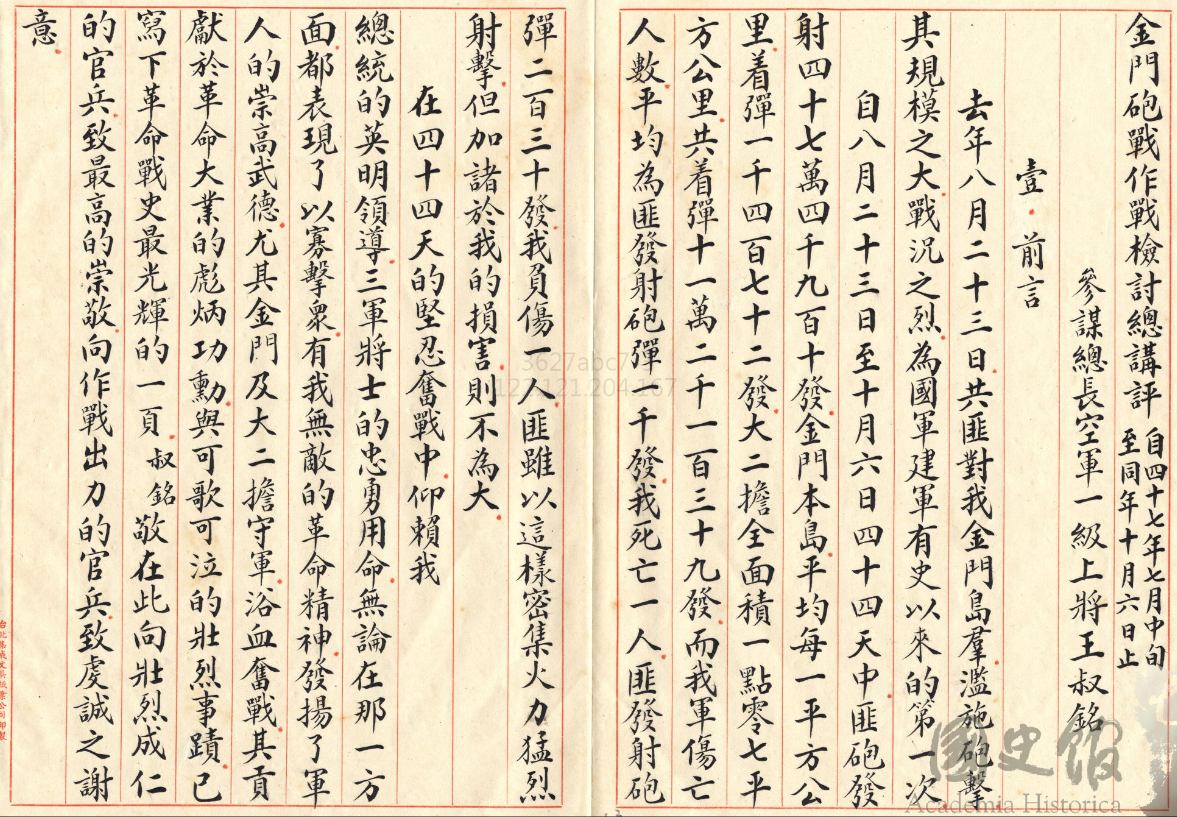 金門砲戰作戰檢討總講評 自四十七年七月中旬
至同年十月六日止
參謀總長空軍一級上將王叔銘
壹·前言
去年八月二十三日共匪對我金門島羣濫施砲擊
其規模之大戰況之烈為國軍建軍有史以來的第一次
自八月二十三日至十月六日四十四天中匪砲發
射四十七萬四千九百十發金門本島平均每一平方公
里着彈一千四百七十二發大二擔全面積一點零七平
方公里共着彈十一萬二千一百三十九發而我軍傷亡
人數平均為匪發射砲彈一千發我死亡一人匪發射砲
彈二百三十發我負傷一人匪雖以這樣密集火力猛烈
射擊但加諸於我的損害則不為大
在四十四天的堅忍奮戰中仰賴我
總統的英明領導三軍將士的忠勇用命無論在那一方
面都表現了以寡擊眾有我無敵的革命精神發揚了軍
人的崇高武德尤其金門及大二擔守軍浴血奮戰其貢
獻於革命大業的彪炳功勳與可歌可泣的壯烈事蹟已
寫下革命戰史最光輝的一頁叔銘敬在此向壯烈成仁
的官兵致最高的崇敬向作戰出力的官兵致虔誠之謝
意
國史館
Academia Historica
3627abc7
122.121.204.167